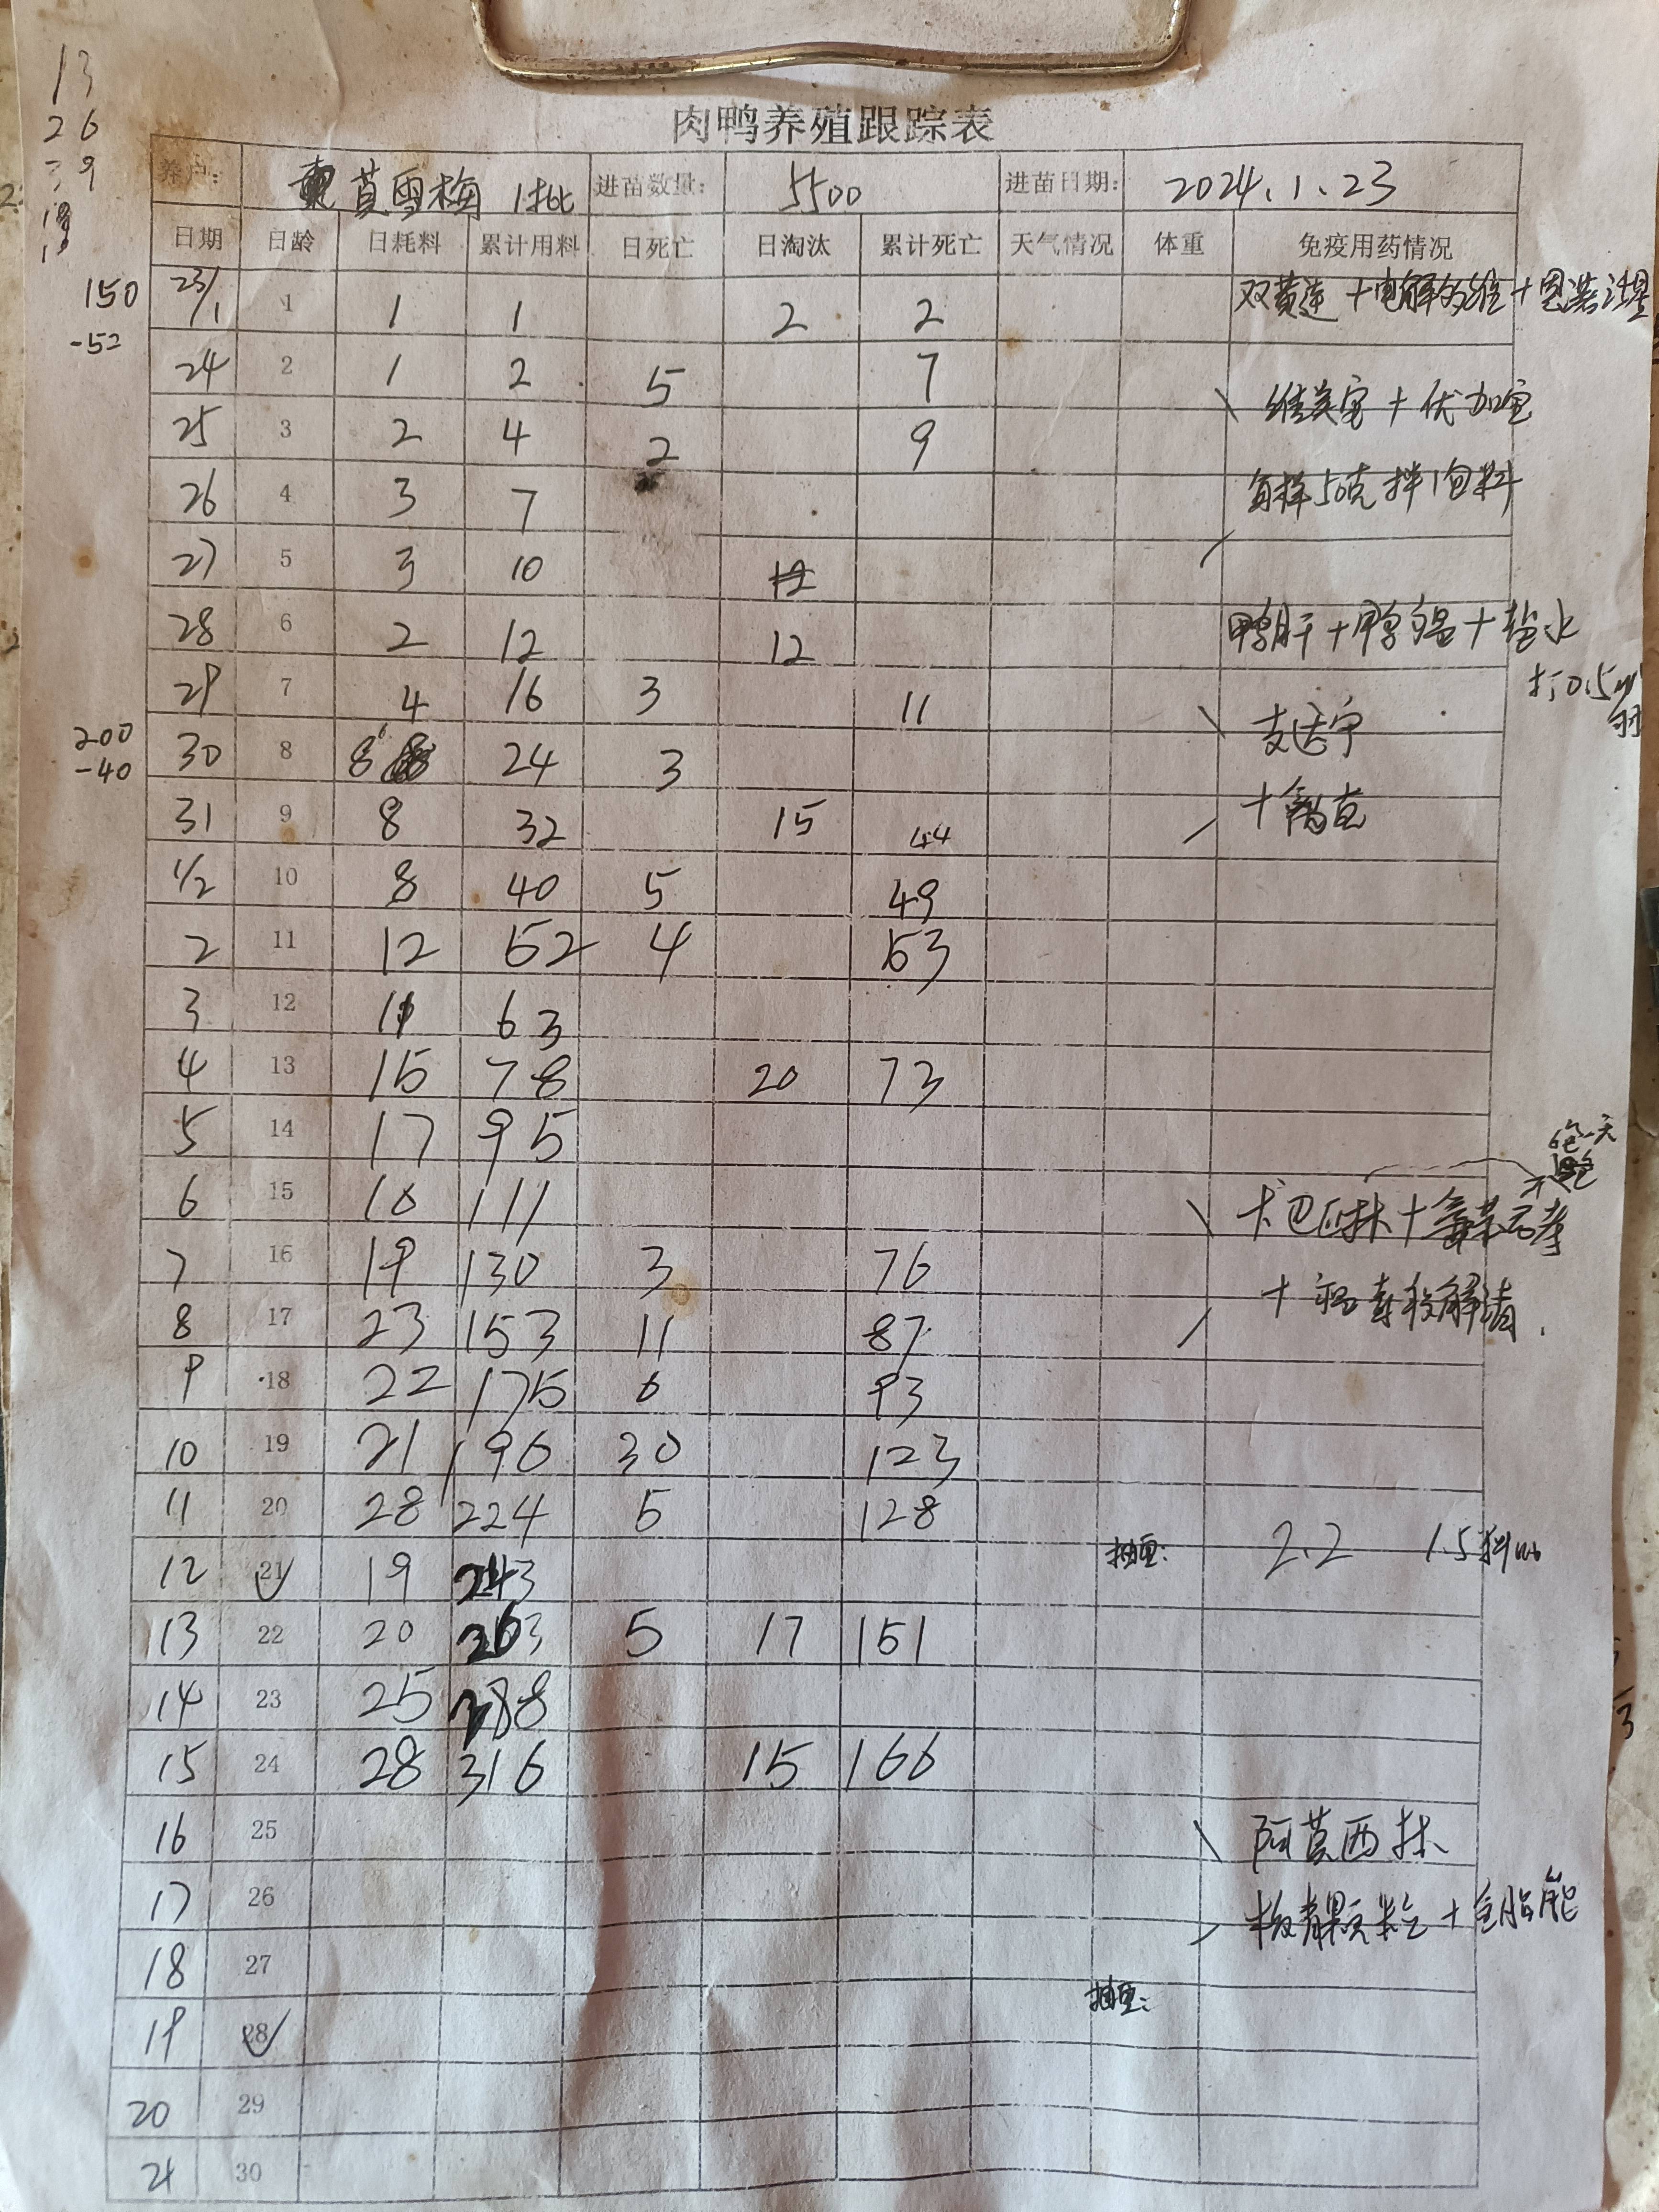 肉鸭养殖跟踪表
养户: 莫雪梅 1批 进苗数量: 5500 进苗日期: 2024.1.23
日期 日龄 日耗料 累计用料 日死亡 日淘汰 累计死亡 天气情况 体重 免疫用药情况
13
26
39
150
-52
23/1 1 1 1 2 2 双黄连+电解多维+恩诺沙星
24 2 1 2 5 7
25 3 2 4 2 9
26 4 3 7 每样50克拌1包料
27 5 3 10 12
28 6 2 12 12 鸭肝+鸭瘟+盐水
打0.5ml
29 7 4 16 3 11
200
-40
30 8 8 24 3
31 9 8 32 15 44
1/2 10 8 40 5 49
2 11 12 52 4 53
3 12 11 63
4 13 15 78 20 73
5 14 17 95
6包一天
6 15 16 111
7 16 19 130 3 76
8 17 23 153 11 87
9 18 22 175 6 93
10 19 21 196 30 123
11 20 28 224 5 128
12 21 19 243 抽重: 2.2 1.5料
13 22 20 263 5 17 151
14 23 25 288
15 24 28 316 15 166
16 25 阿莫西林
17 26 板青颗粒+
18 27
抽重:
19 28
20 29
21 30